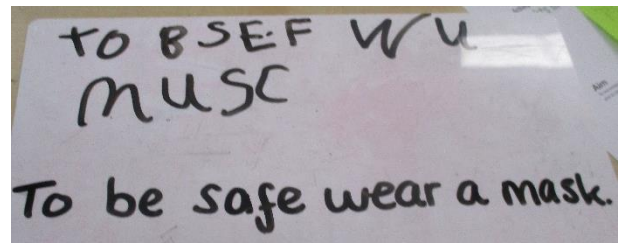 TO B SEF W U
MUSC
To be safe wear a mask.
Aim